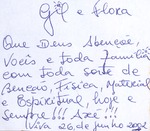 Gil e Flora
Que Deus Abençõe,
Voceis e toda Família
com toda sorte de
Benção, Física, Material
e Espiritual, hoje e
Sempre!!! Axé!!!
Viva 26, de junho 2002